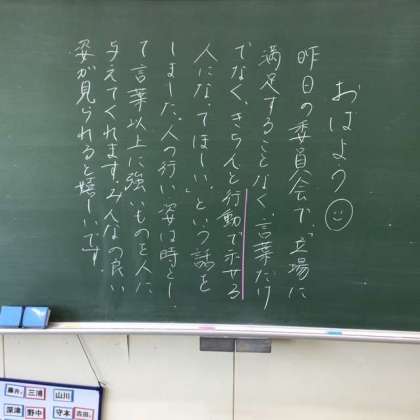 おはよう
昨日の委員会で、「立場に
満足することなく、言葉だけ
でなく、きちんと行動で示せる
人になってほしい」という話を
しました。人の行い、姿は時とし
て言葉以上に強いものを人に
与えてくれます。みんなの良い
姿が見られると嬉しいです。
藤井 三浦 山川
深津 野中 守本 吉田